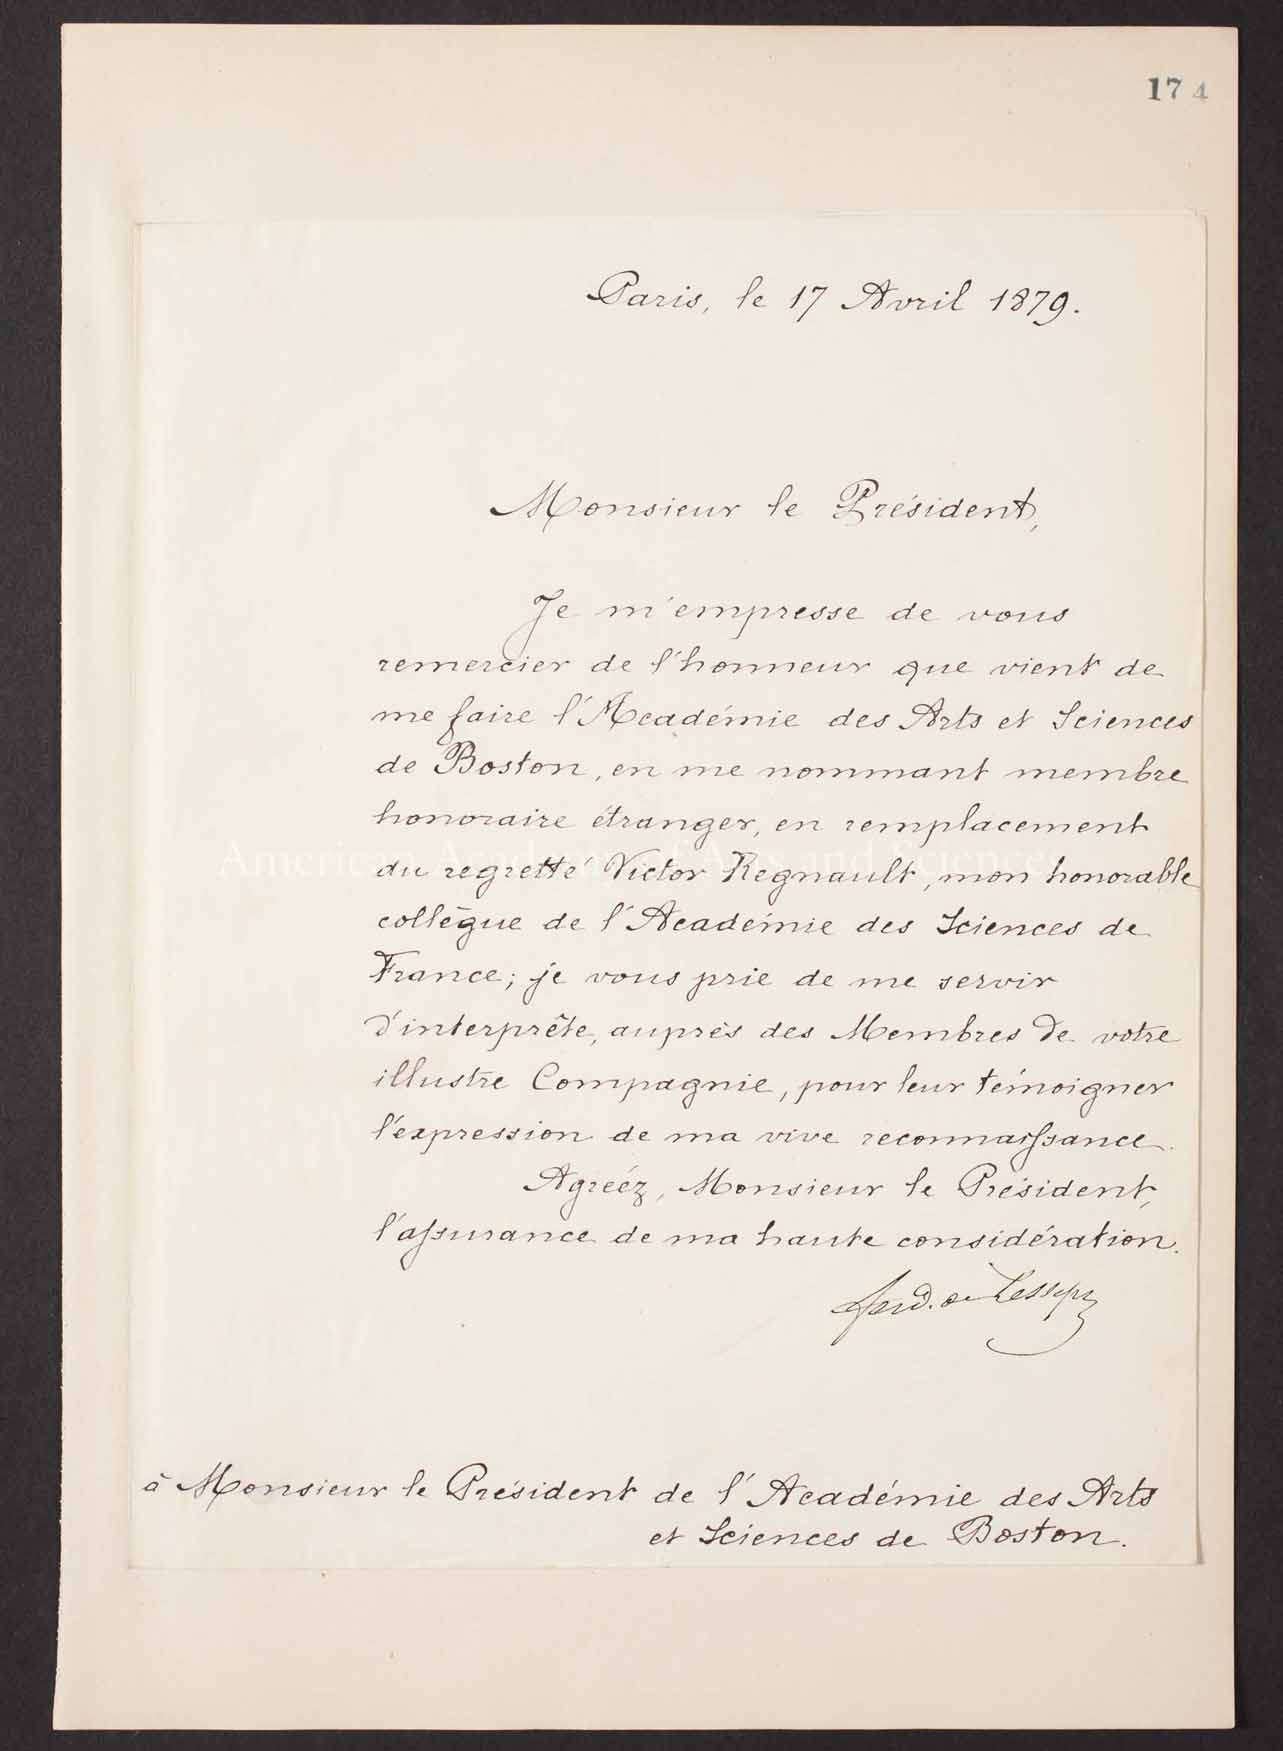 174
Paris, le 17 Avril 1879.
Monsieur le Président,
Je m'empresse de vous
remercier de l'honneur que vient de
me faire l'Académie des Arts et Sciences
de Boston, en me nommant membre
honoraire étranger, en remplacement
American Academy of Arts and Sciences
du regretté Victor Regnault, mon honorable
collègue de l'Académie des Sciences de
France; je vous prie de me servir
d'interprête, auprès des Membres de votre
illustre Compagnie, pour leur témoigner
l'expression de ma vive reconnaissance.
Agréez, Monsieur le Président,
l'assurance de ma haute considération.
Ferd. de Lesseps
à Monsieur le Président de l'Académie des Arts
et Sciences de Boston.